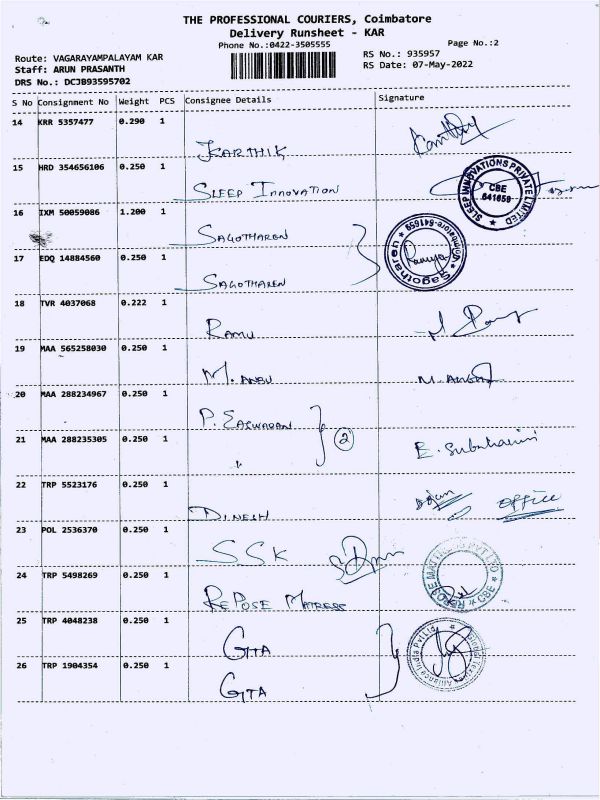 THE PROFESSIONAL COURIERS, Coimbatore
Delivery Runsheet - KAR
Phone No.:0422-3505555
Page No.:2
Route: VAGARAYAMPALAYAM KAR
RS No.: 935957
Staff: ARUN PRASANTH
RS Date: 07-May-2022
DRS No.: DCJB93595702
S No Consignment No Weight PCS Consignee Details Signature
14 KRR 5357477 0.290 1
KARTHIK
15 HRD 354656106 0.250 1
SLEEP INNOVATION
SLEEP INNOVATIONS PRIVATE LIMITED
CBE
641659
16 IXM 50059086 1.200 1
SAGOTHAREN
17 EDQ 14884560 0.250 1
SAGOTHAREN
Sagotharan
Coimbatore-641659
Ramya
18 TVR 4037068 0.222 1
RAMU
19 MAA 565258030 0.250 1
M. ANBU
20 MAA 288234967 0.250 1
P. EASWARAN
2
21 MAA 288235305 0.250 1
E. Subahasini
22 TRP 5523176 0.250 1
DINESH
OFFICE
23 POL 2536370 0.250 1
SSK
24 TRP 5498269 0.250 1
REPOSE MATRESS
REPOSE MATTRESS PVT LTD
CBE
25 TRP 4048238 0.250 1
GITA
26 TRP 1904354 0.250 1
GITA